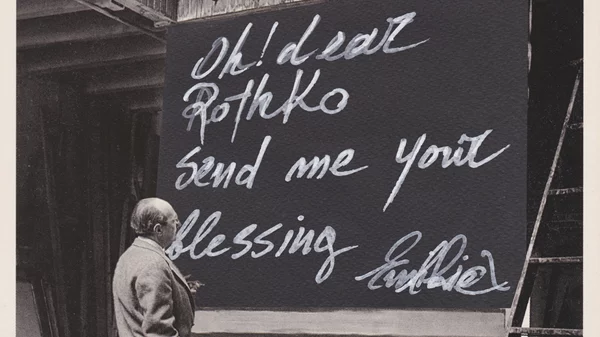 Oh! dear
RothKo
Send me your
blessing